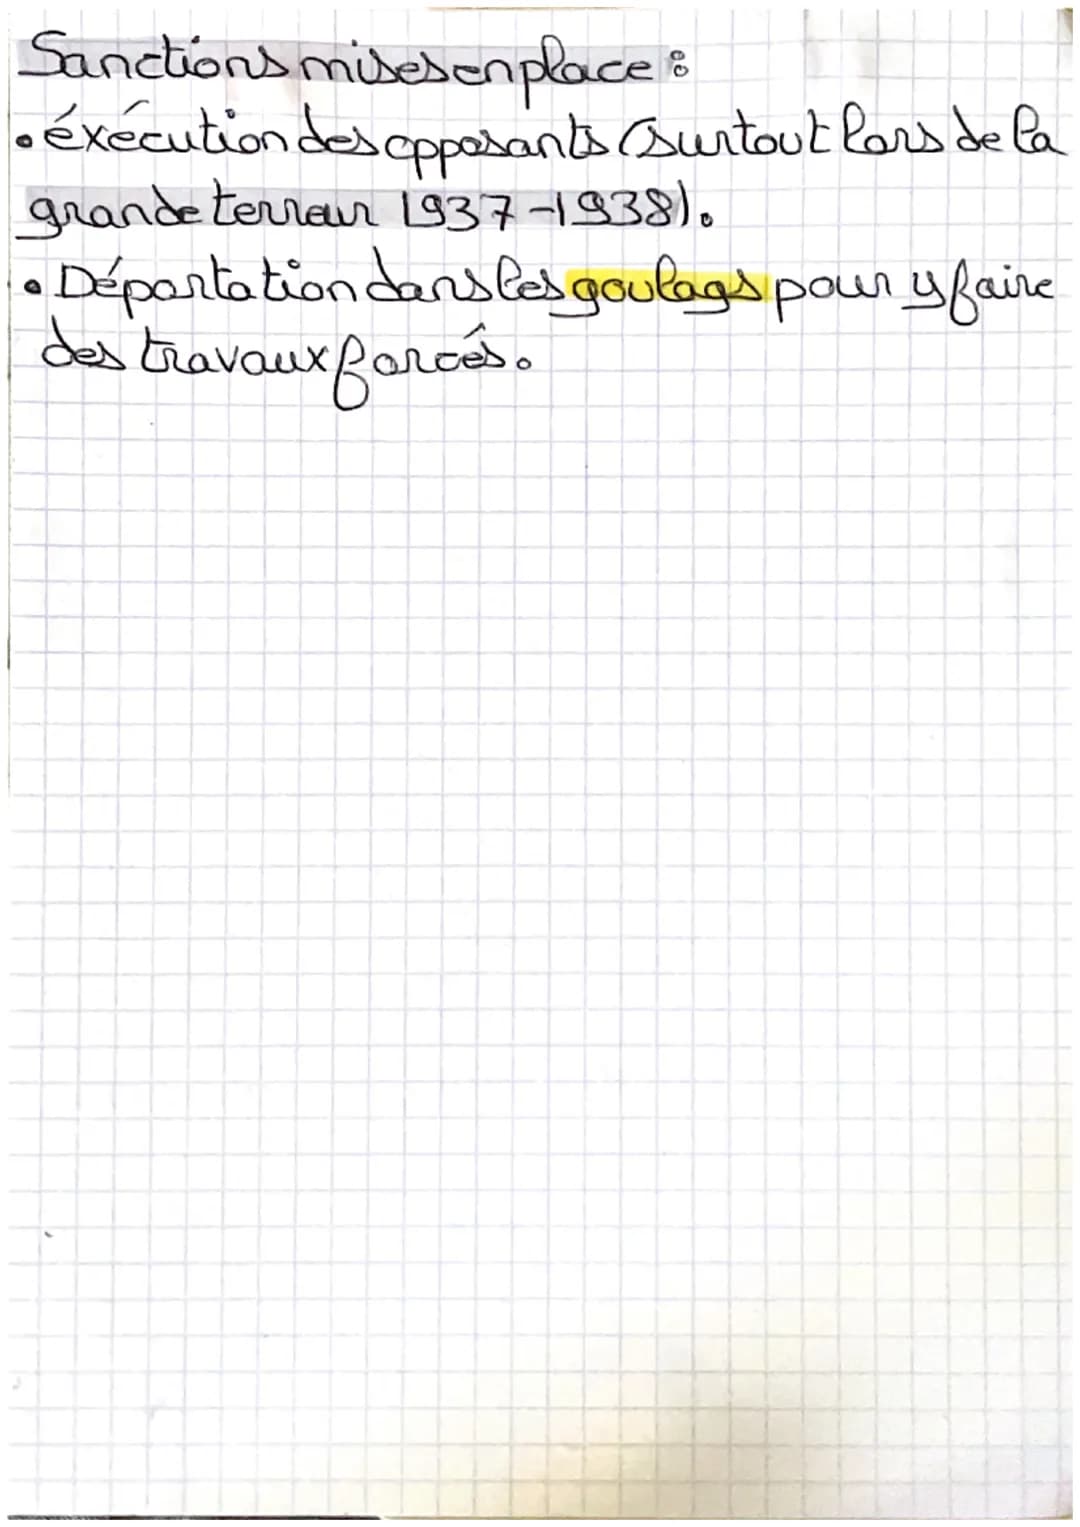 Sanctions mises en place :
• éxécution des opposants (surtout lors de la
grande terreur 1937-1938).
• Déportation dans les goulags pour y faire
des travaux forcés.